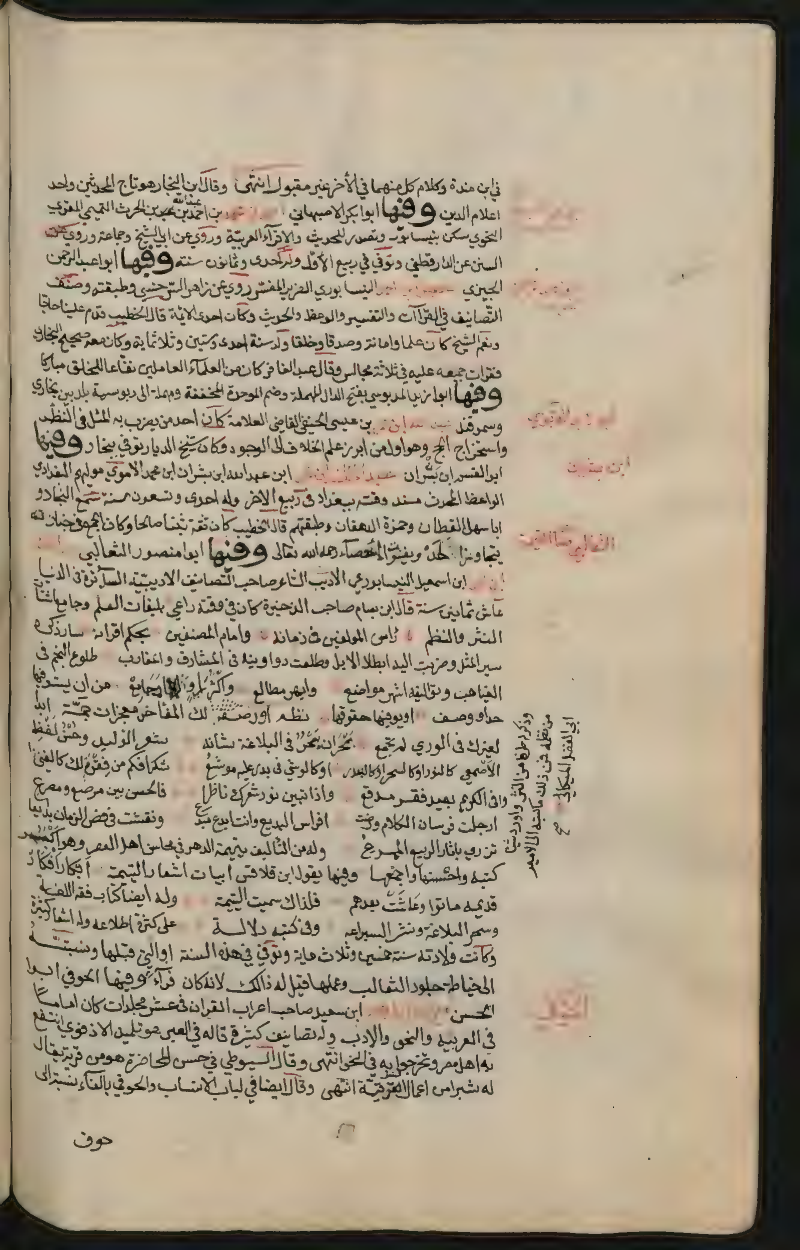 في ابن مندة وكلام كل منهما في الأخر غير مقبول انتهى وقال ابن النجار هو تاج المحدثين واحد
اعلام الدين وفيها ابو بكر الاصبهاني بن احمد بن عبد الله بن الحرث التميمي المقري
النحوي سكن نيسابور وتصدر للحديث والاقرآء العربية وروي عن ابي الشيخ وجماعة وروي
السنن عن الدارقطني وتوفي في ربيع الأول وله احدى وثمانون سنة وفيها ابو عبد الرحمن
الحيري النيسابوري الضرير المفسر روي عن زاهر السرخسي وطبقته وصنف
التصانيف في القرآت والتفسير والوعظ والحديث وكان احدى الايمة قال الخطيب قدم علينا حاجا
ونعم الشيخ كان علما وامانة وصدقا وخلقا ولد سنة احدى وستين وثلاثماية وكان معه صحيح البخاري
فقرات جميعه عليه في ثلاثة مجالس وقال عبد الغافر كان من العلمآء العاملين نفاعا للخلق مباركا
وفيها ابو زيد الدبوسي بفتح الدال المهملة وضم الموحدة المخففة ومهملة الى دبوسية بلد بين بخارى
وسمرقند بن عيسى الحنفي القاضي العلامة كان احد من يضرب به المثل في النظر
واستخراج الحجج وهو اول من ابرز علم الخلاف الى الوجود وكان شيخ الديار توفي ببخارا وفيها
ابو القسم ابن بشران ابن عبد الله ابن بشران ابن محمد الاموي مولاهم البغدادي
الواعظ المحدث مسند وقته ببغداد في ربيع الاخر وله احدى وتسعون سنة سمع النجاد و
ابا سهل القطان وحمزة الدهقان وطبقتهم قال الخطيب كان ثقة ثبتا صالحا وكان الجمع في جنازته
يتجاوز الحد ويفوت الاحصآء رحمه الله تعالى وفيها ابو منصور الثعالبي
ابن اسمعيل النيسابوري الاديب الشاعر صاحب التصانيف الادبية السآئرة في الدنيا
عاش ثمانين سنة قال ابن بسام صاحب الذخيرة كان في وقته راعي بليغات العلم وجامع اشتات
النثر والنظم راس المولفين في زمانه وامام المصنفين بحكم اقرانه سار ذكره
سير المثل وضربت اليه اباط الابل وطلعت دواوينه في المشارق والمغارب طلوع النجم في
الغياهب وتواليفه اشهر مواضع وابهر مطالع واكثر من ان يستوفيها
حد او وصف او يوفيها حقوقها نظم او رصف لك المفاخر معجزات جمة ابدا
لغيرك في الوري لم تجمع بحران بحر في البلاغة شانه شعر الوليد وحسن لفظ
الأصمعي كالنور او كالسحر او كالبدر او كالوشي في برد عليه موشع شكرا فكم من فقرة لك كالغنى
وافى الكريم بعيد فقر مدقع واذا تفتق نور شعرك ناظر فالحسن بين مرصع ومصرع
ارجلت فرسان الكلام ورضت افراس البديع وانت ابدع مبدع ونقشت في فص الزمان بدايعا
تزري باثار الربيع الممرع وله من التاليف يتيمة الدهر في محاسن اهل العصر وهو اكبر
كتبه واحسنها واجمعها وفيها يقول ابن قلاقس ابيات اشعار اليتيمة ابكار افكار
قديمه ماتوا وعاشت بعدهم فلذاك سميت اليتيمة وله ايضا كتاب فقه اللغة
وسحر البلاغة وسر البراعه وفي كتبه دلالة على كثرة اطلاعه وله اشعار كثيرة
وكانت ولادته سنة خمسين وثلاث ماية وتوفي في هذه السنة او التي قبلها ونسبته
الى خياطة جلود الثعالب وعملها قيل له ذالك لانه كان فرآء وفيها الحوفي ابو
الحسن ابن سعيد صاحب اعراب القران في عشر مجلدات كان اماما
في العربية والنحو والادب وله تصانيف كثيرة قاله في العبر هو تلميذ الاذفوي انتفع
به اهل مصر وتخرجوا به في النحو انتهى وقال السيوطي في حسن المحاضرة هو من قرية يقال
له شبرا من اعمال الشرقية انتهى وقال ايضا في لباب الانساب والحوفي بالفآء نسبة الى
حوف
ابو زيد الدبوسي
ابن بشران
الثعالبي
الحوفي
وذكر طرفا من النثر واورد شيئا
من نظمه فمن ذلك ما كتبه الى الامير
ابي الفضل الميكالي
صح